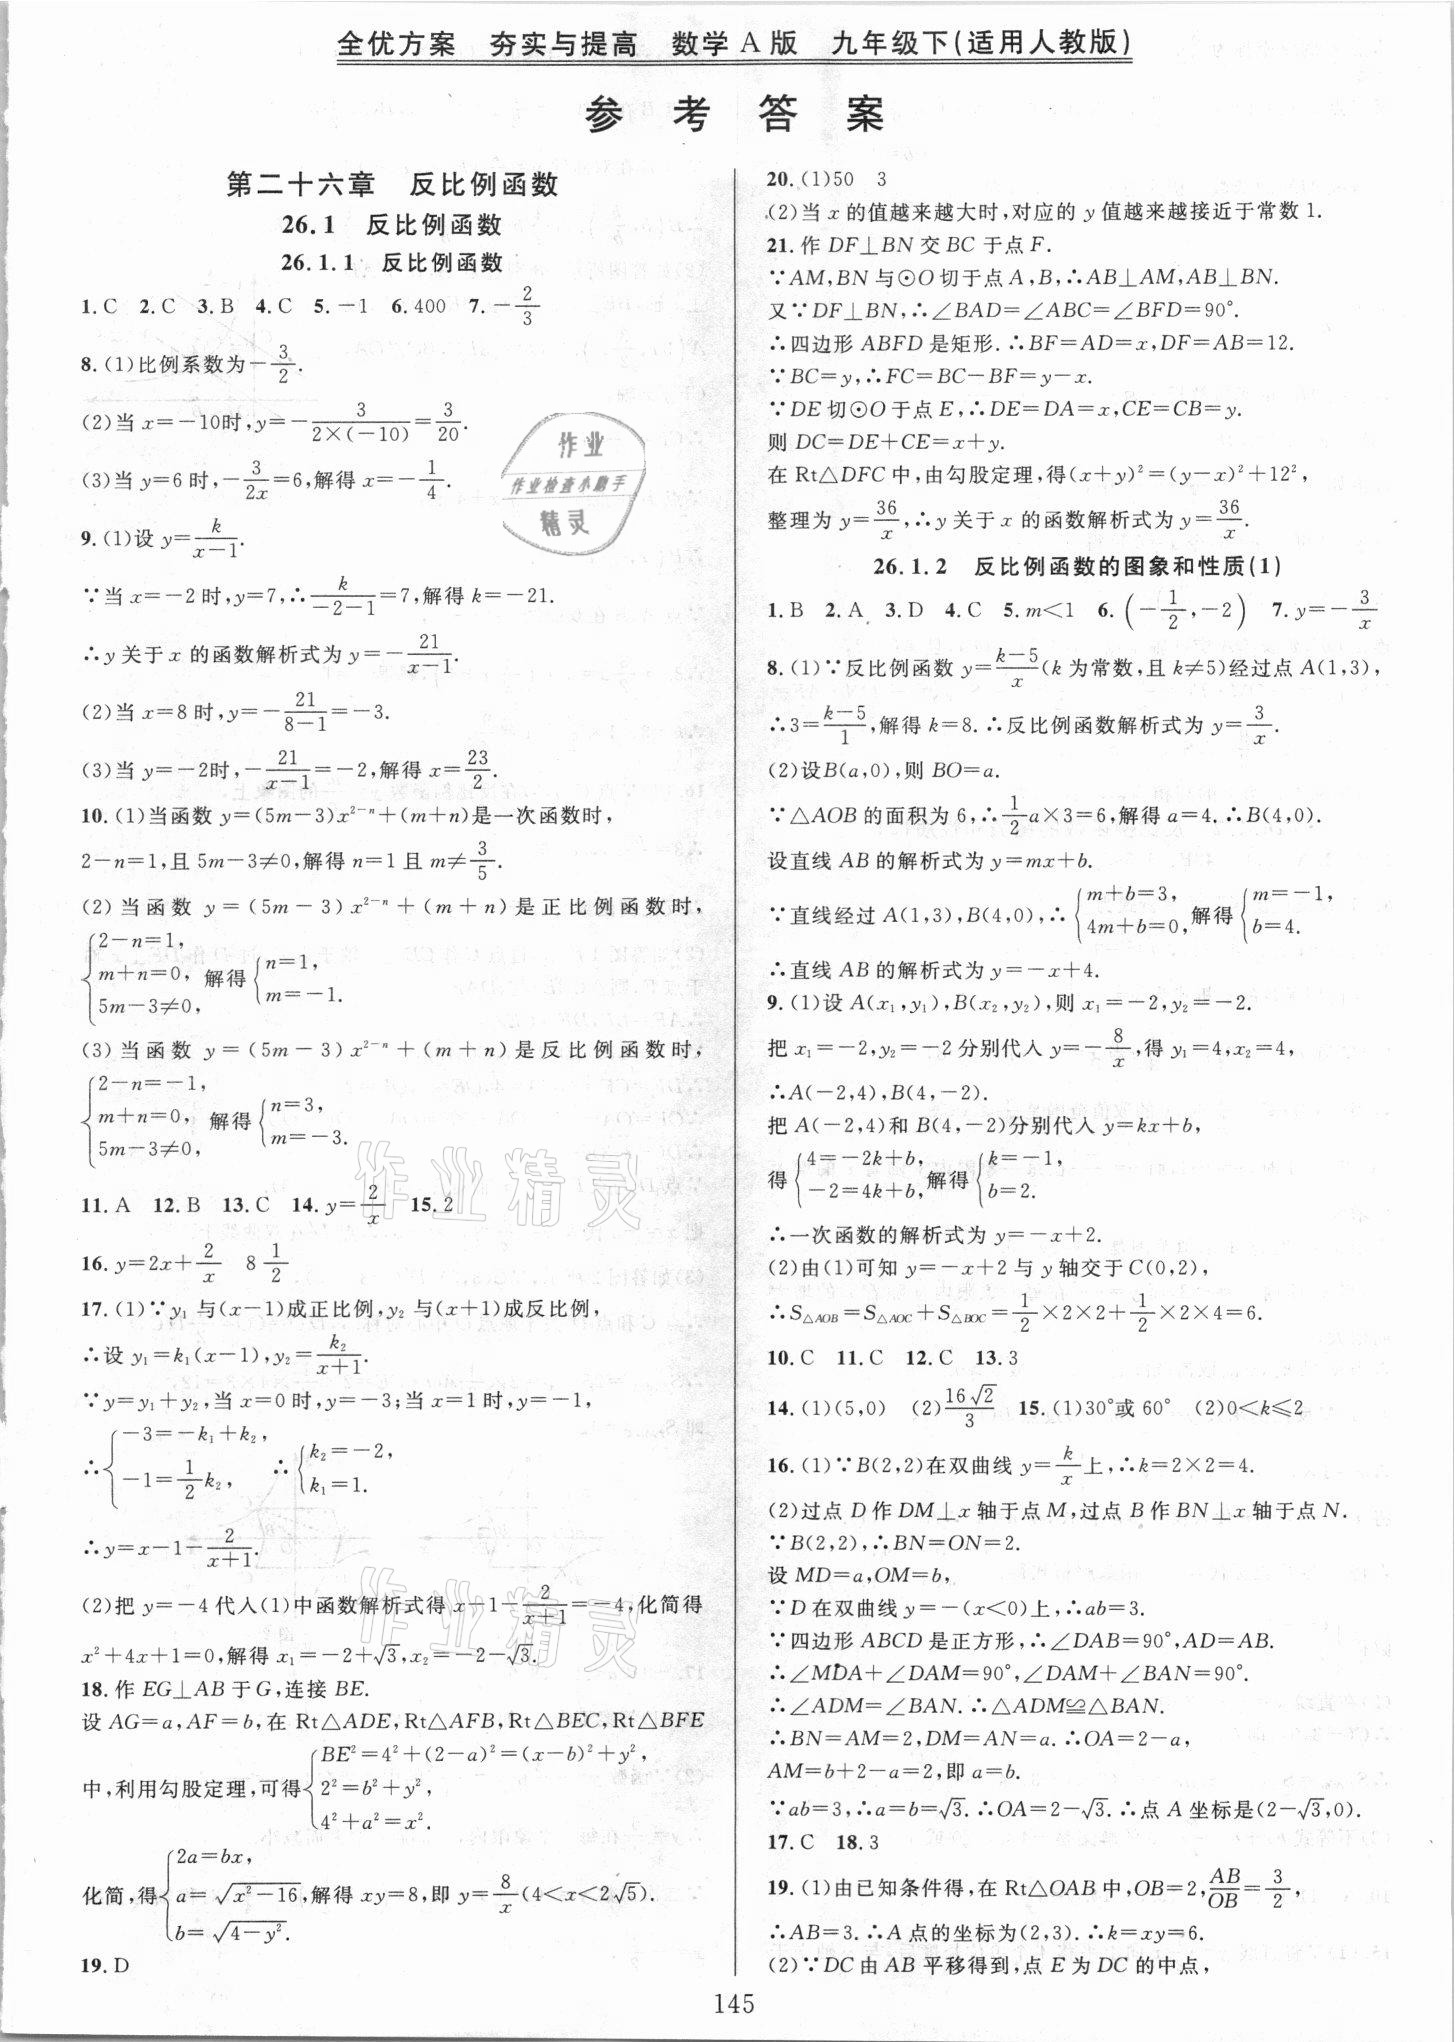 全优方案 夯实与提高 数学A版 九年级下(适用人教版)
参考答案
第二十六章 反比例函数
26.1 反比例函数
26.1.1 反比例函数
1.C 2.C 3.B 4.C 5.-1 6.400 7.-2/3
8.(1)比例系数为-3/2.
(2)当x=-10时,y=-3/(2×(-10))=3/20.
(3)当y=6时,-3/(2x)=6,解得x=-1/4.
9.(1)设y=k/(x-1).
∵当x=-2时,y=7,∴k/(-2-1)=7,解得k=-21.
∴y关于x的函数解析式为y=-21/(x-1).
(2)当x=8时,y=-21/(8-1)=-3.
(3)当y=-2时,-21/(x-1)=-2,解得x=23/2.
10.(1)当函数y=(5m-3)x²⁻ⁿ+(m+n)是一次函数时,
2-n=1,且5m-3≠0,解得n=1且m≠3/5.
(2)当函数y=(5m-3)x²⁻ⁿ+(m+n)是正比例函数时,
{2-n=1, m+n=0, 5m-3≠0, 解得{n=1, m=-1.
(3)当函数y=(5m-3)x²⁻ⁿ+(m+n)是反比例函数时,
{2-n=-1, m+n=0, 5m-3≠0, 解得{n=3, m=-3.
11.A 12.B 13.C 14.y=2/x 15.2
16.y=2x+2/x 8 1/2
17.(1)∵y₁与(x-1)成正比例,y₂与(x+1)成反比例,
∴设y₁=k₁(x-1),y₂=k₂/(x+1).
∵y=y₁+y₂,当x=0时,y=-3;当x=1时,y=-1,
∴{-3=-k₁+k₂, -1=1/2k₂, ∴{k₂=-2, k₁=1.
∴y=x-1-2/(x+1).
(2)把y=-4代入(1)中函数解析式得x-1-2/(x+1)=-4,化简得
x²+4x+1=0,解得x₁=-2+√3,x₂=-2-√3.
18.作EG⊥AB于G,连接BE.
设AG=a,AF=b,在Rt△ADE,Rt△AFB,Rt△BEC,Rt△BFE
中,利用勾股定理,可得{BE²=4²+(2-a)²=(x-b)²+y², 2²=b²+y², 4²+a²=x².
化简,得{2a=bx, a=√(x²-16), b=√(4-y²). 解得xy=8,即y=8/x(4<x<2√5).
19.D
20.(1)50 3
(2)当x的值越来越大时,对应的y值越来越接近于常数1.
21.作DF⊥BN交BC于点F.
∵AM,BN与⊙O切于点A,B,∴AB⊥AM,AB⊥BN.
又∵DF⊥BN,∴∠BAD=∠ABC=∠BFD=90°.
∴四边形ABFD是矩形.∴BF=AD=x,DF=AB=12.
∵BC=y,∴FC=BC-BF=y-x.
∵DE切⊙O于点E,∴DE=DA=x,CE=CB=y.
则DC=DE+CE=x+y.
在Rt△DFC中,由勾股定理,得(x+y)²=(y-x)²+12²,
整理为y=36/x,∴y关于x的函数解析式为y=36/x.
26.1.2 反比例函数的图象和性质(1)
1.B 2.A 3.D 4.C 5.m<1 6.(-1/2,-2) 7.y=-3/x
8.(1)∵反比例函数y=(k-5)/x(k为常数,且k≠5)经过点A(1,3),
∴3=(k-5)/1,解得k=8.∴反比例函数解析式为y=3/x.
(2)设B(a,0),则BO=a.
∵△AOB的面积为6,∴1/2a×3=6,解得a=4.∴B(4,0).
设直线AB的解析式为y=mx+b.
∵直线经过A(1,3),B(4,0),∴{m+b=3, 4m+b=0, 解得{m=-1, b=4.
∴直线AB的解析式为y=-x+4.
9.(1)设A(x₁,y₁),B(x₂,y₂),则x₁=-2,y₂=-2.
把x₁=-2,y₂=-2分别代入y=-8/x,得y₁=4,x₂=4,
∴A(-2,4),B(4,-2).
把A(-2,4)和B(4,-2)分别代入y=kx+b,
得{4=-2k+b, -2=4k+b, 解得{k=-1, b=2.
∴一次函数的解析式为y=-x+2.
(2)由(1)可知y=-x+2与y轴交于C(0,2),
∴S△AOB=S△AOC+S△BOC=1/2×2×2+1/2×2×4=6.
10.C 11.C 12.C 13.3
14.(1)(5,0) (2)16√2/3 15.(1)30°或60° (2)0<k≤2
16.(1)∵B(2,2)在双曲线y=k/x上,∴k=2×2=4.
(2)过点D作DM⊥x轴于点M,过点B作BN⊥x轴于点N.
∵B(2,2),∴BN=ON=2.
设MD=a,OM=b,
∵D在双曲线y=-(x<0)上,∴ab=3.
∵四边形ABCD是正方形,∴∠DAB=90°,AD=AB.
∴∠MDA+∠DAM=90°,∠DAM+∠BAN=90°.
∴∠ADM=∠BAN.∴△ADM≌△BAN.
∴BN=AM=2,DM=AN=a.∴OA=2-a,
AM=b+2-a=2,即a=b.
∵ab=3,∴a=b=√3.∴OA=2-√3.∴点A坐标是(2-√3,0).
17.C 18.3
19.(1)由已知条件得,在Rt△OAB中,OB=2,AB/OB=3/2,
∴AB=3.∴A点的坐标为(2,3).∴k=xy=6.
(2)∵DC由AB平移得到,点E为DC的中点,
145
作业
作业检查小助手
精灵
作业精灵
作业精灵